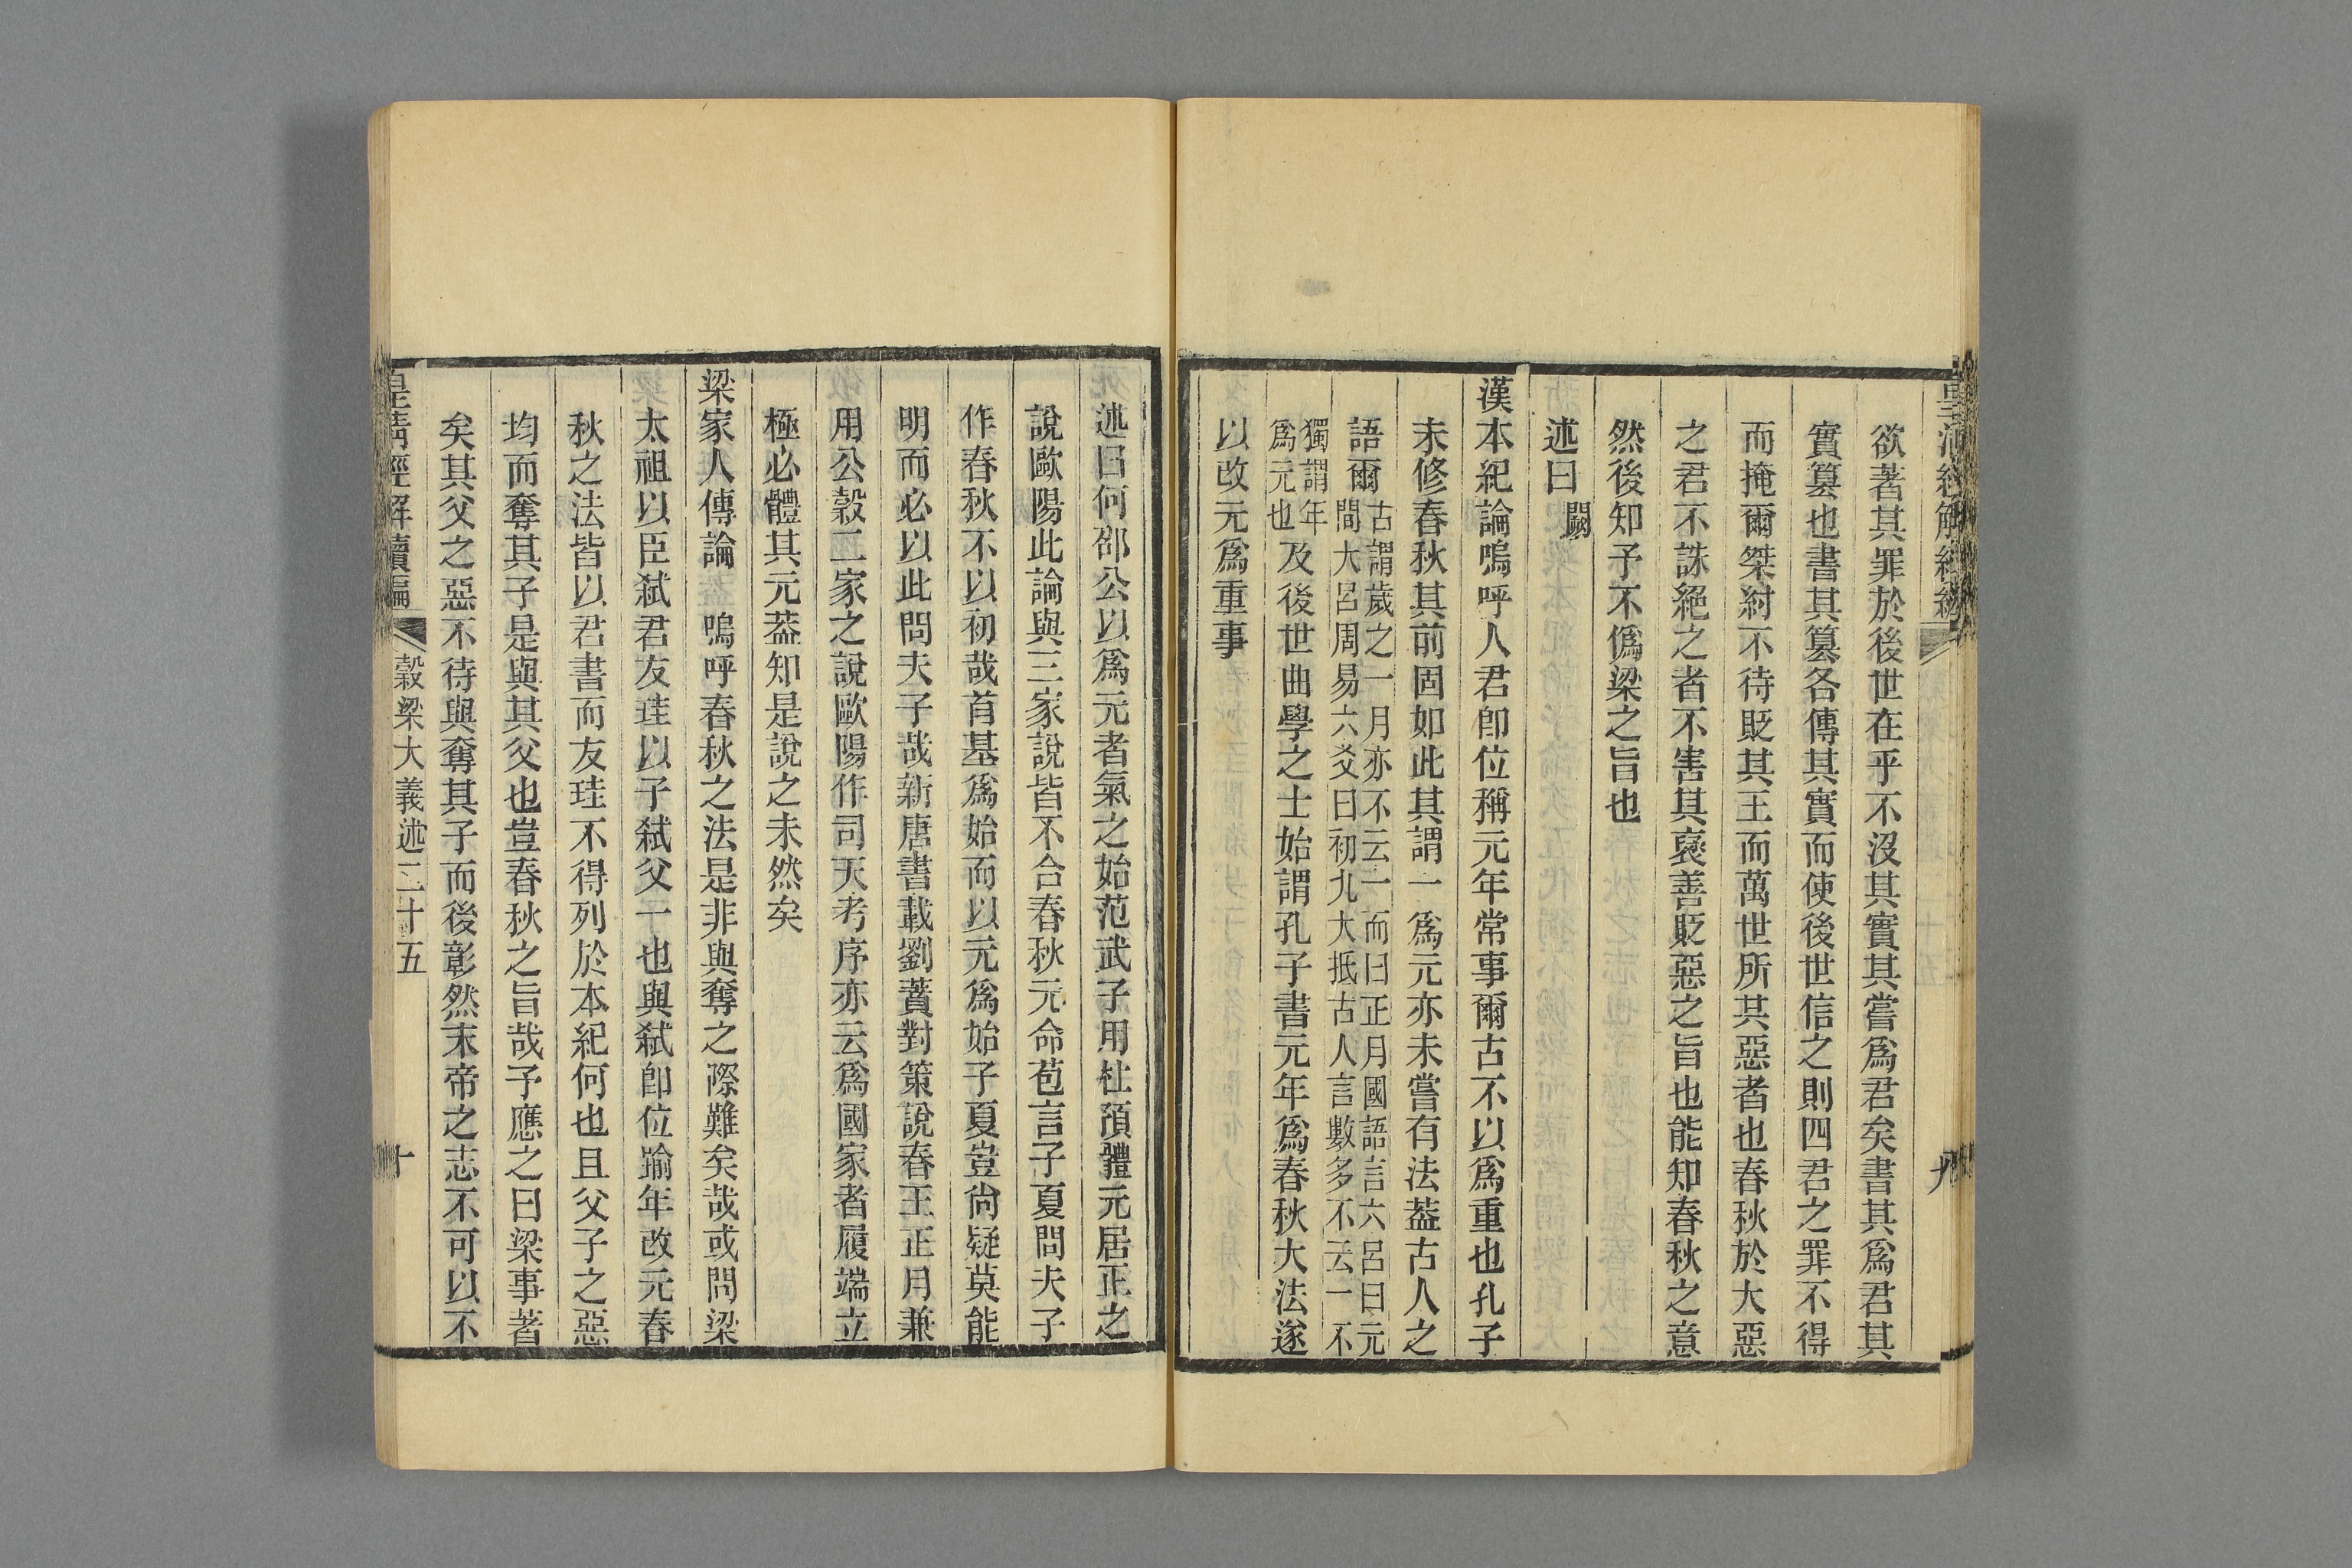 欲著其罪於後世在乎不沒其實其嘗爲君矣書其爲君其
實篡也書其篡各傳其實而使後世信之則四君之罪不得
而掩爾桀紂不待貶其王而萬世所共惡者也春秋於大惡
之君不誅絕之者不害其襃善貶惡之旨也能知春秋之意
然後知予不僞梁之旨也
述曰闕
漢本紀論嗚呼人君卽位稱元年常事爾古不以爲重也孔子
未修春秋其前固如此其謂一爲元亦未嘗有法葢古人之
語爾古謂歲之一月亦不云一而曰正月國語言六呂曰元
間大呂周易六爻曰初九大抵古人言數多不云一不
獨謂年
爲元也及後世曲學之士始謂孔子書元年爲春秋大法遂
以改元爲重事
九
述曰何邵公以爲元者氣之始范武子用杜預體元居正之
說歐陽此論與三家說皆不合春秋元命苞言子夏問夫子
作春秋不以初哉首基爲始而以元爲始子夏豈尙疑莫能
明而必以此問夫子哉新唐書載劉蕡對策說春王正月兼
用公穀二家之說歐陽作司天考序亦云爲國家者履端立
極必體其元葢知是說之未然矣
梁家人傳論 嗚呼春秋之法是非與奪之際難矣哉或問梁
太祖以臣弑君友珪以子弑父一也與弑卽位踰年改元春
秋之法皆以君書而友珪不得列於本紀何也且父子之惡
均而奪其子是與其父也豈春秋之旨哉予應之曰梁事著
矣其父之惡不待與奪其子而後彰然末帝之志不可以不
皇清經解續編 穀梁大義述二十五 十